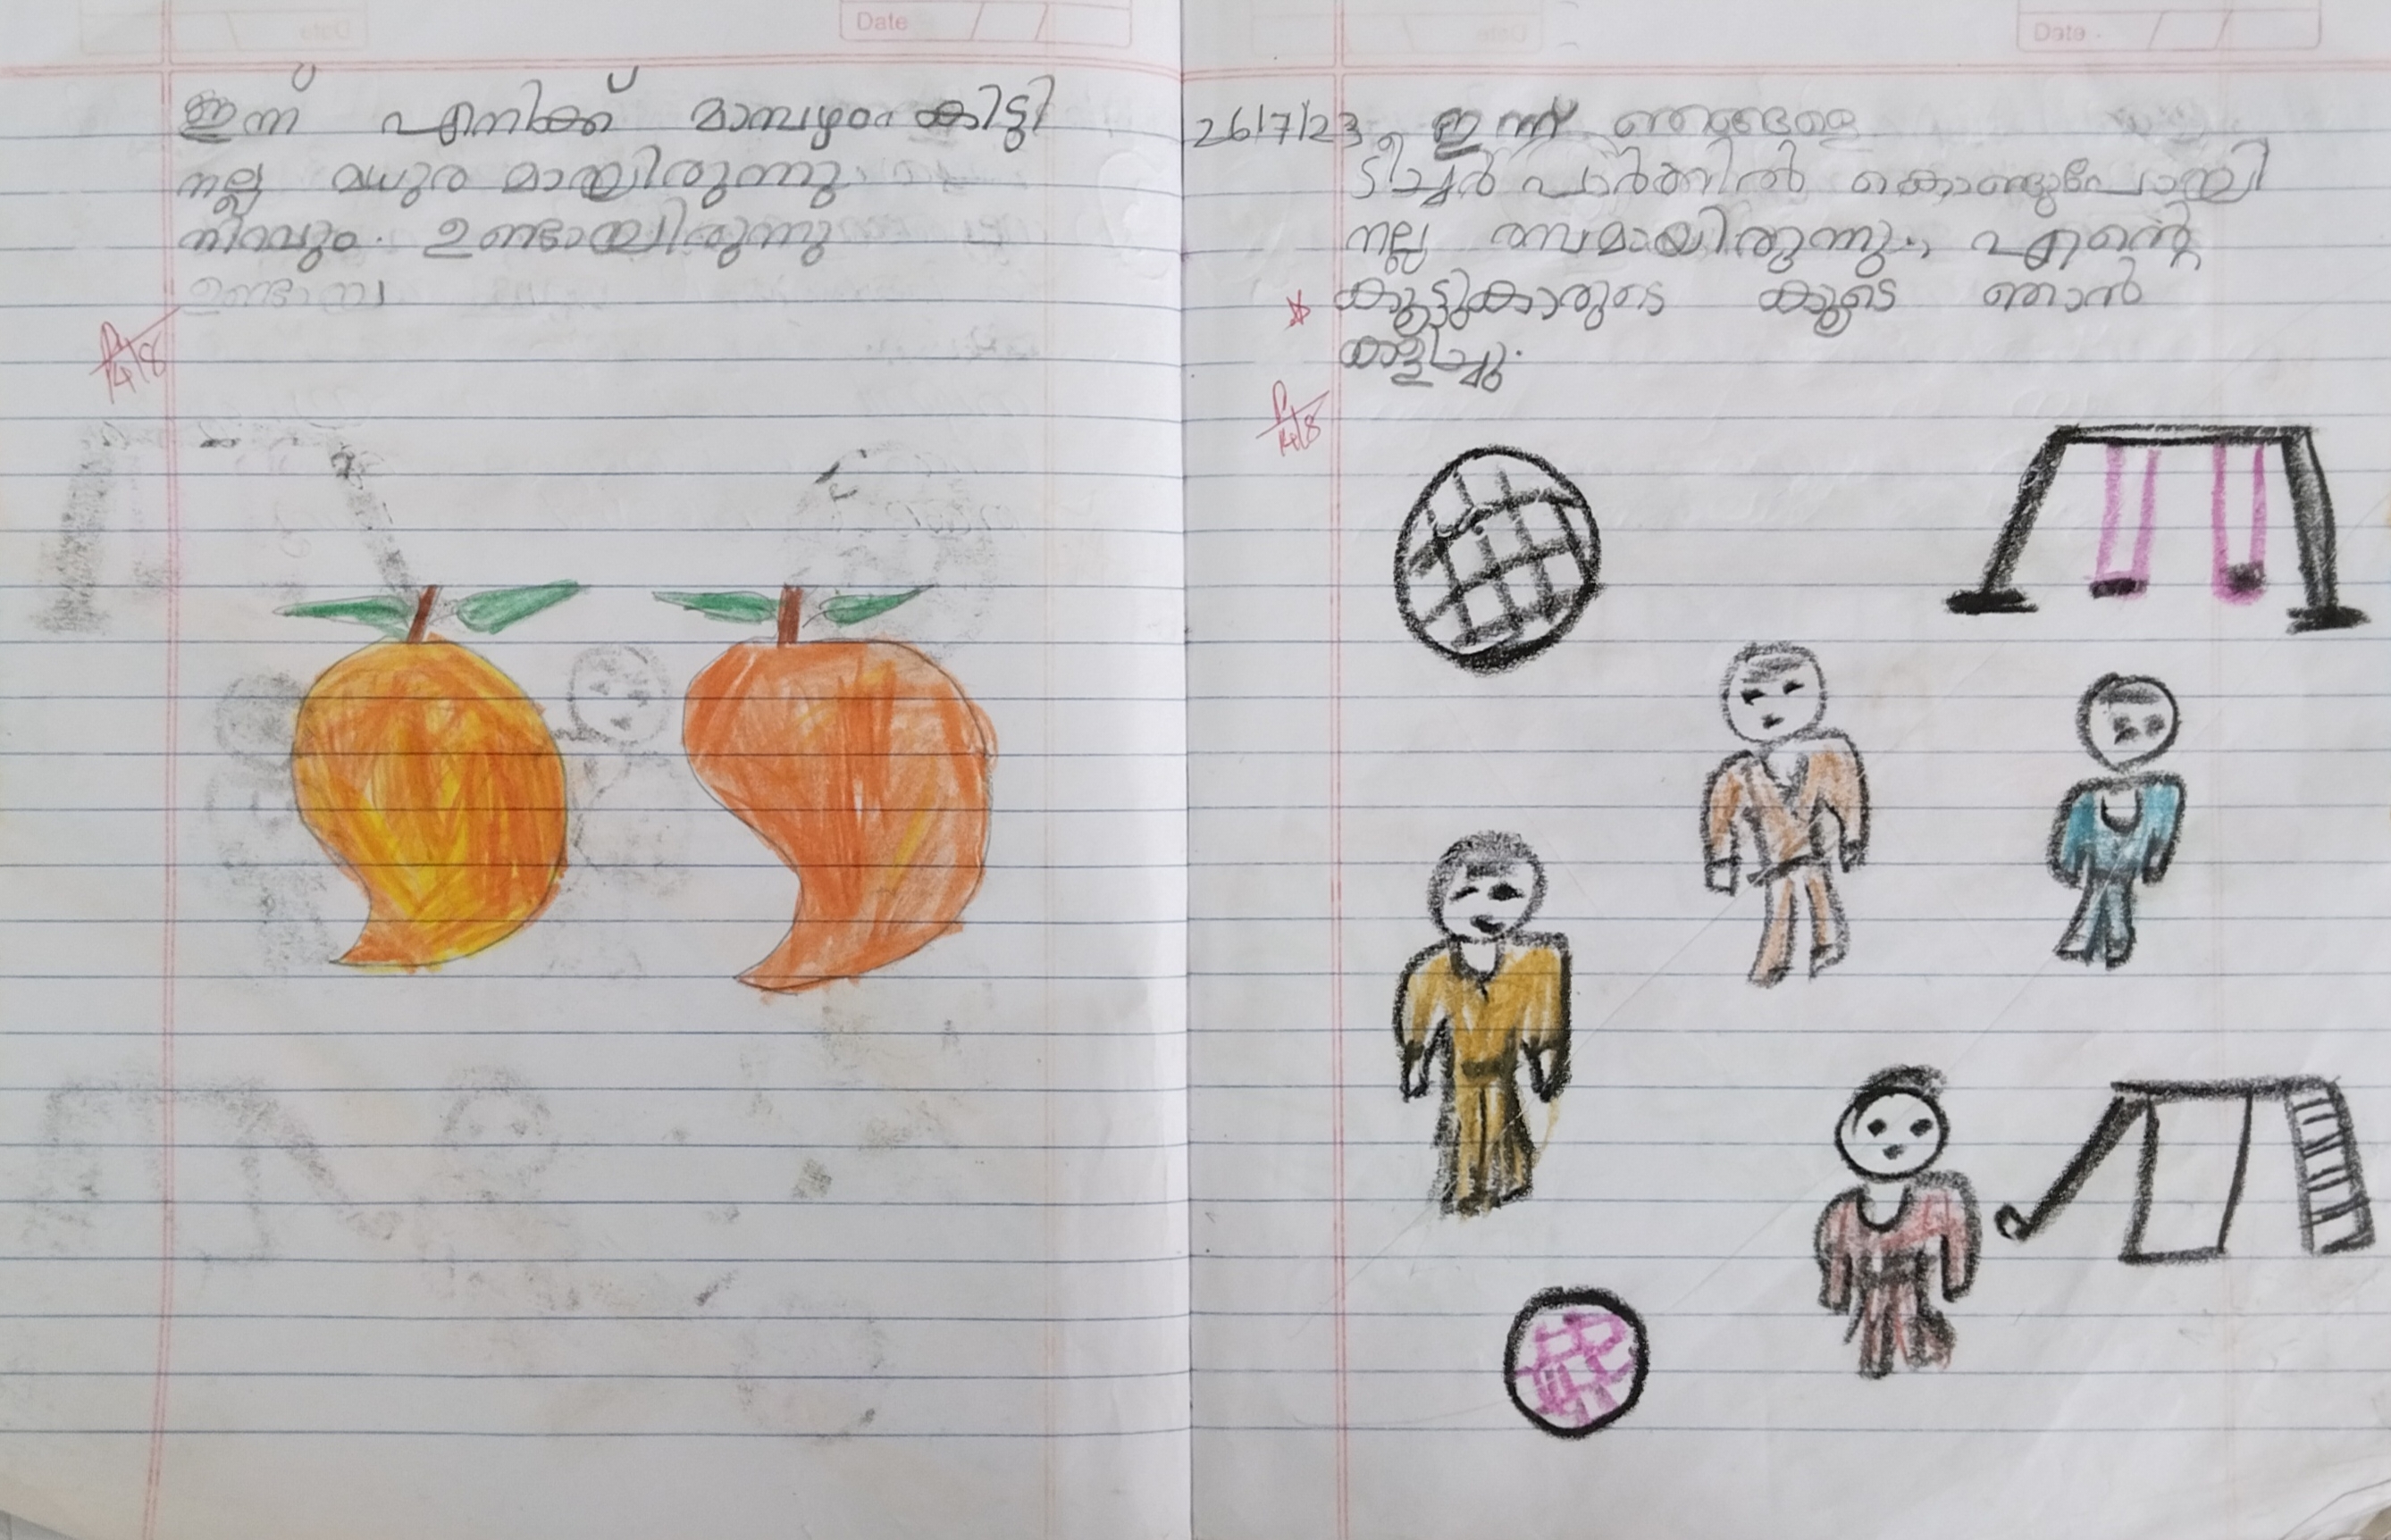 Date
ഇന്ന് എനിക്ക് മാമ്പഴം കിട്ടി
നല്ല മധുര മായിരുന്നു.
നിറവും. ഉണ്ടായിരുന്നു
ഉണ്ടായി
Date
26/7/23 ഇന്ന് ഞങ്ങളെ
ടീച്ചർ പാർക്കിൽ കൊണ്ടുപോയി
നല്ല രസമായിരുന്നു., എന്റെ
കൂട്ടുകാരുടെ കൂടെ ഞാൻ
കളിച്ചു.